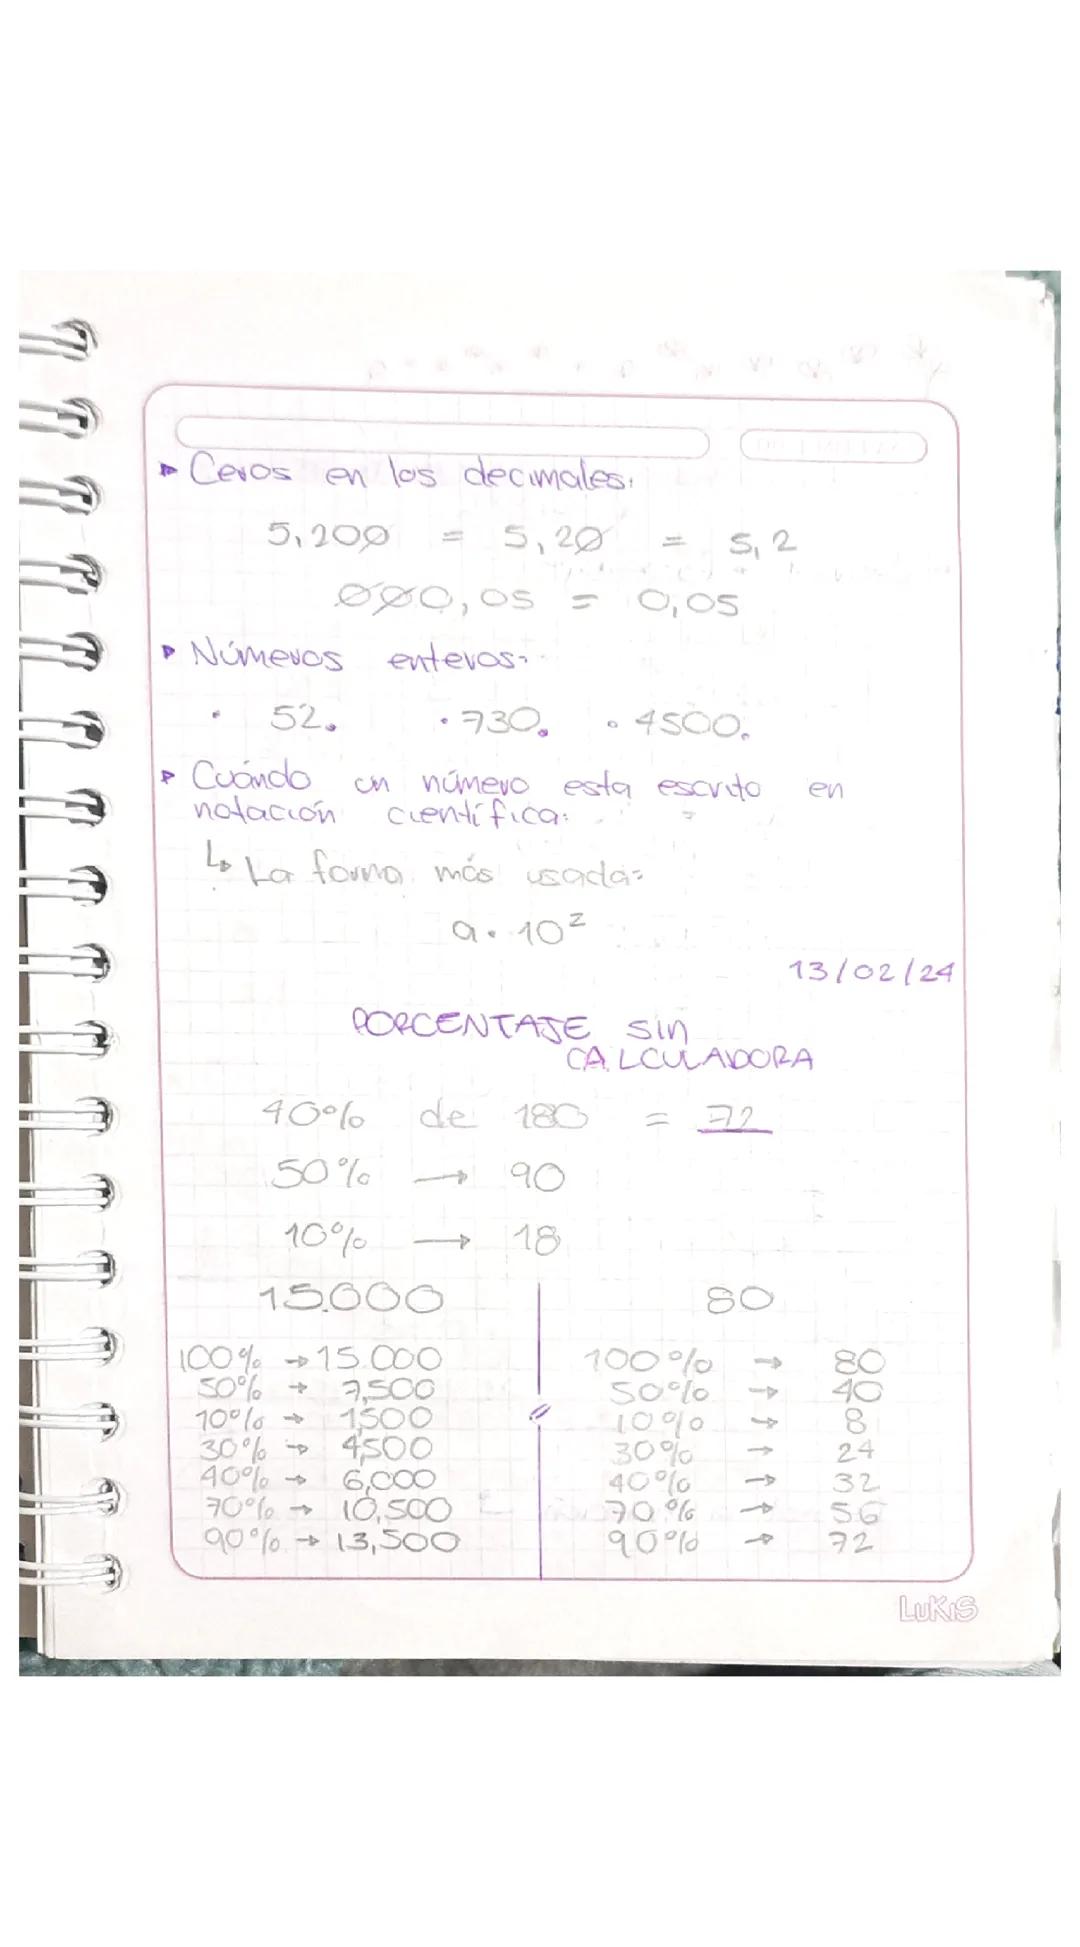 Ceros en los decimales:
5,200 = 5,20 = 5,2
000,05 = 0,05
Números enteros:
· 52. · 730. · 4500.
Cuándo un número esta escrito en
notación científica:
↳ La forma más usada:
a · 10²
13/02/24
PORCENTAJE sin
CALCULADORA
40% de 180 = 72
50% → 90
10% → 18
15.000
100% → 15.000
50% → 7,500
10% → 1,500
30% → 4,500
40% → 6,000
70% → 10,500
90% → 13,500
80
100% → 80
50% → 40
10% → 8
30% → 24
40% → 32
70% → 56
90% → 72
LUKIS